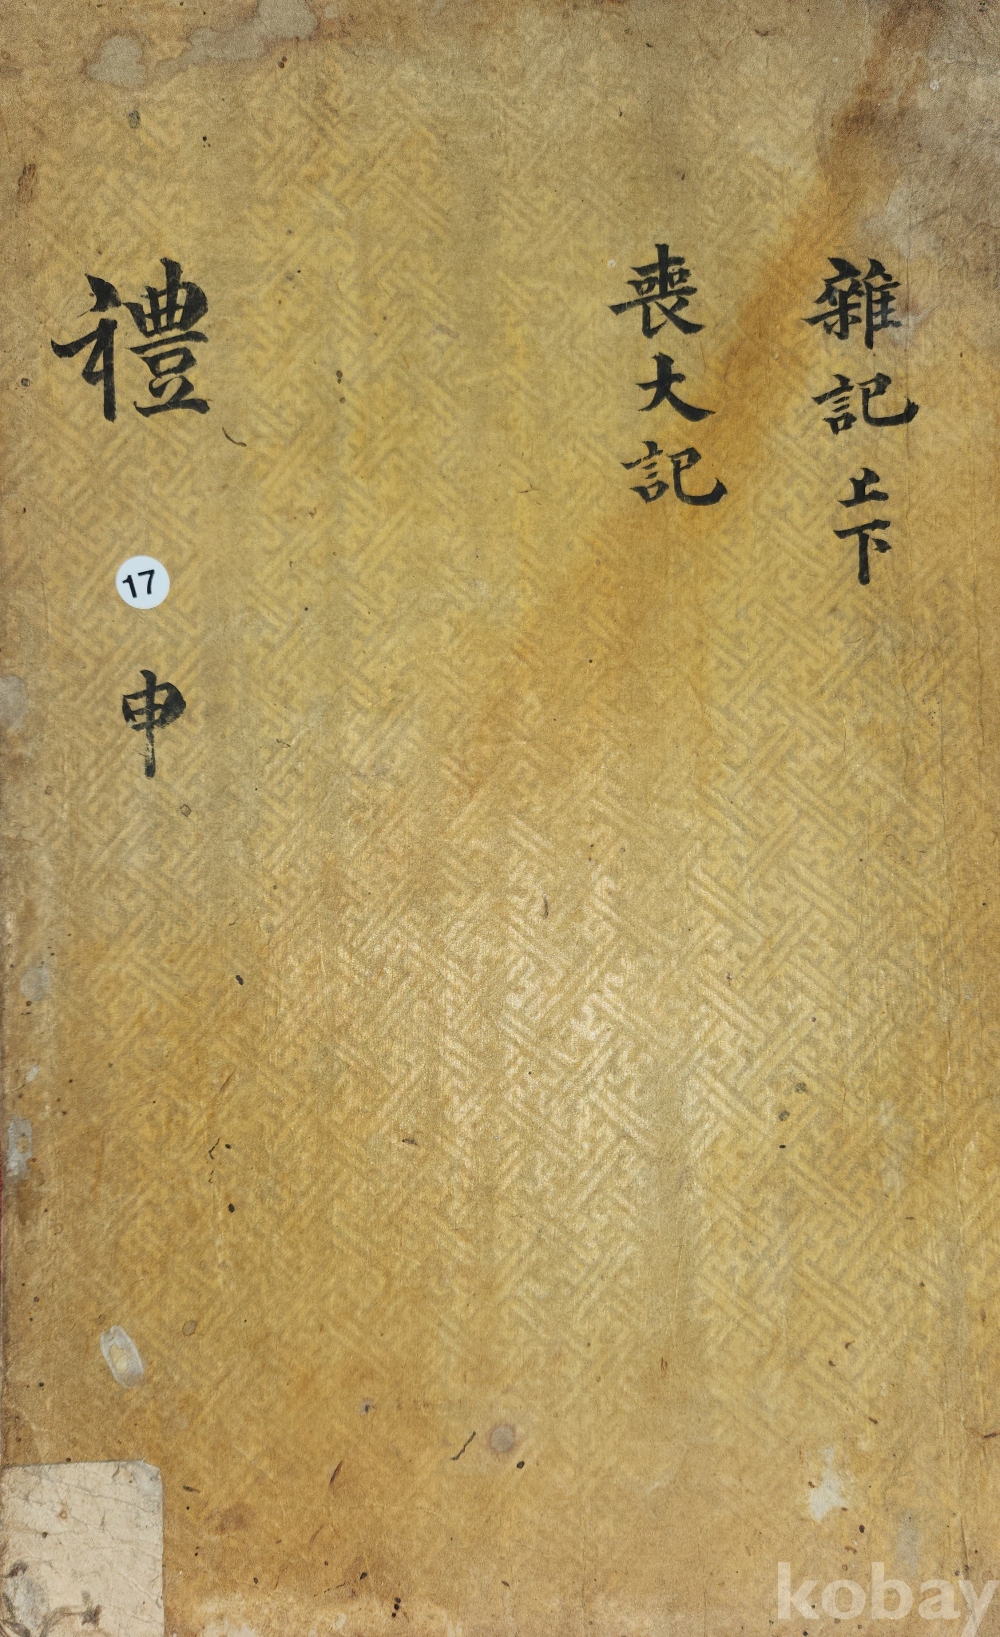 雜記上下
喪大記
禮
17
申
kobay